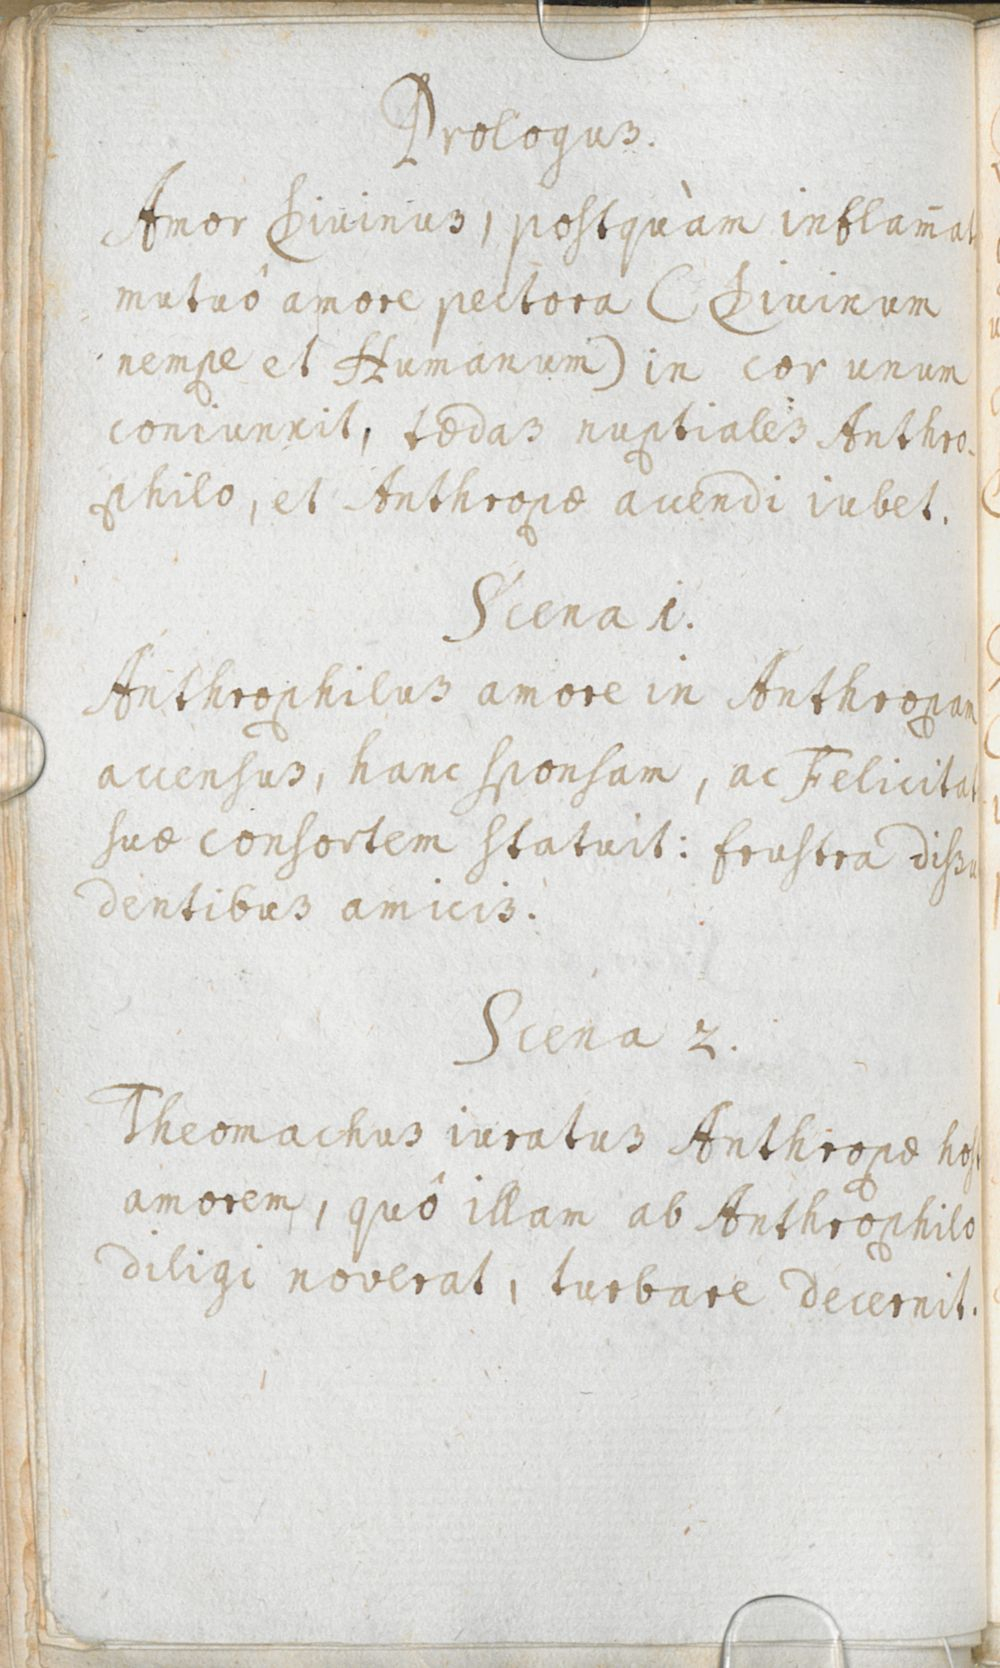 Prologus.
Amor Divinus, postquàm inflam̄at
mutuô amore pectora (Divinum
nempe et Humanum) in cor unum
coniunxit, tædas nuptiales Anthro-
philo, et Anthropæ accendi iubet.
Scena 1.
Anthrophilus amore in Anthropam
accensus, hanc sponsam, ac Felicitat
suæ consortem statuit: frustra dissua
dentibus amicis.
Scena 2.
Theomachus iuratus Anthropæ host
amorem, quô illam ab Anthrophilo
diligi noverat, turbare decernit.